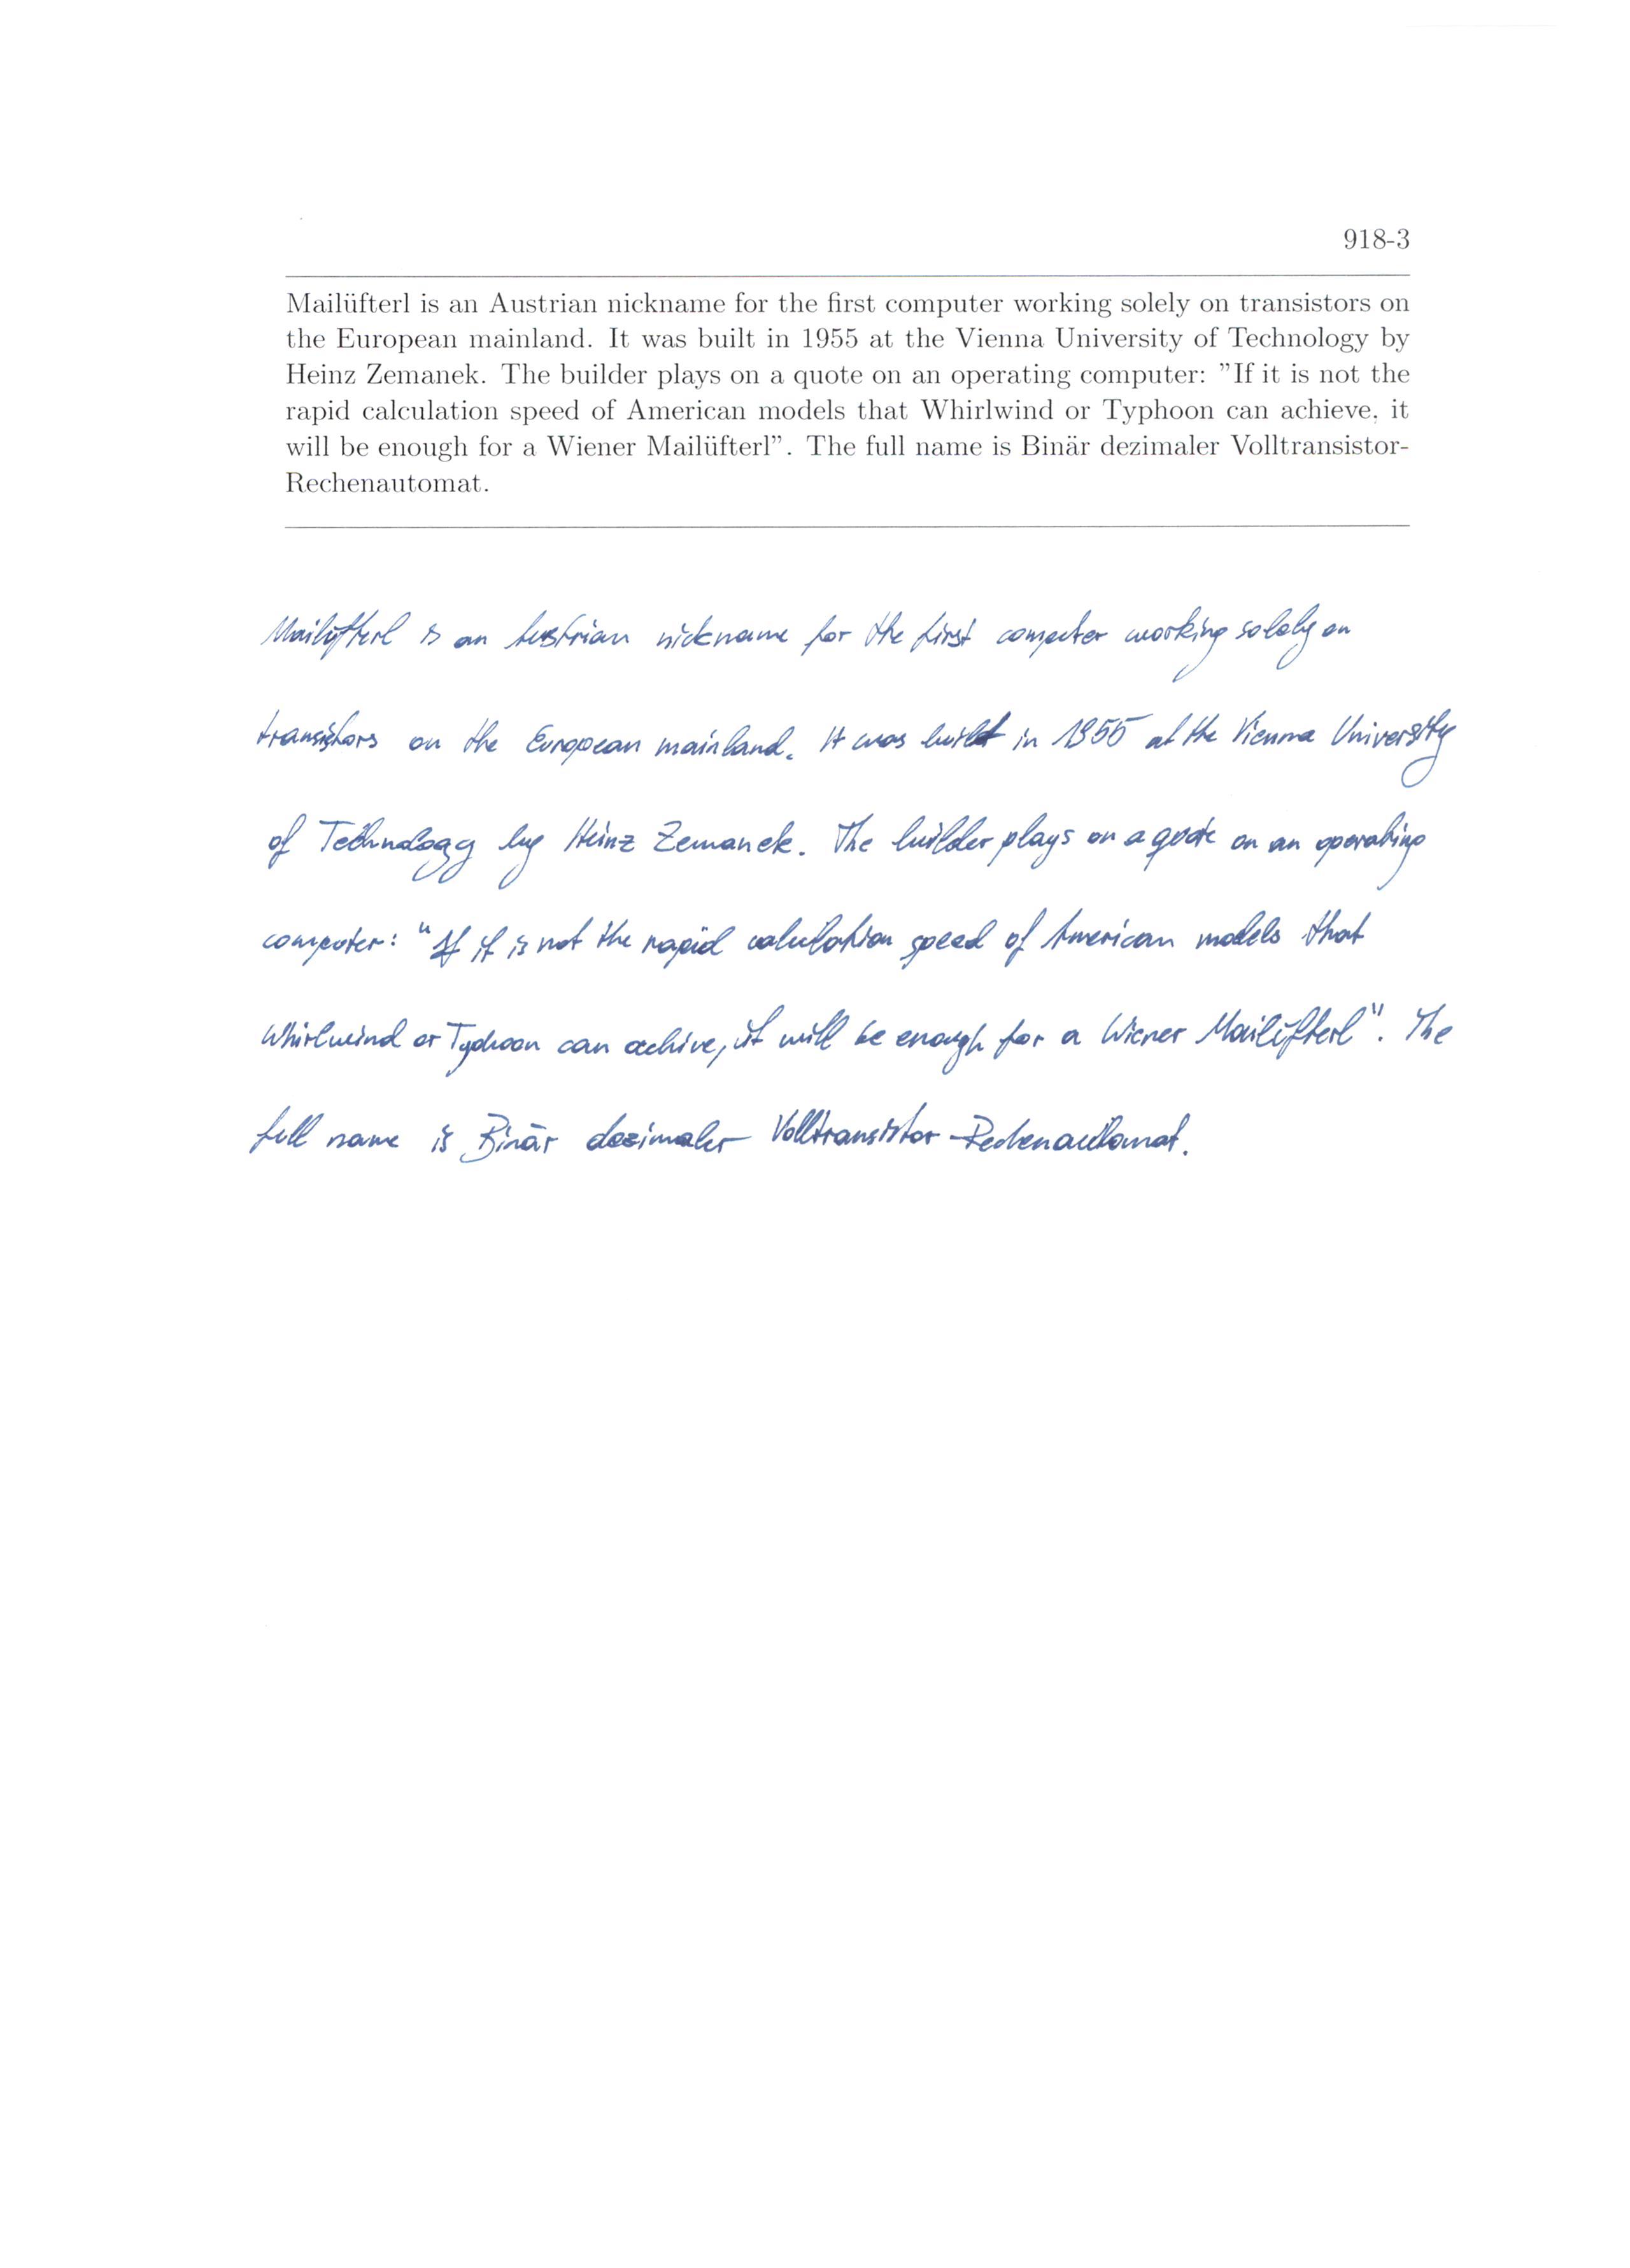 918-3
Mailüfterl is an Austrian nickname for the first computer working solely on transistors on
the European mainland. It was built in 1955 at the Vienna University of Technology by
Heinz Zemanek. The builder plays on a quote on an operating computer: ”If it is not the
rapid calculation speed of American models that Whirlwind or Typhoon can achieve, it
will be enough for a Wiener Mailüfterl”. The full name is Binär dezimaler Volltransistor-
Rechenautomat.
Mailüfterl is an Austrian nickname for the first computer working solely on
transistors on the European mainland. It was built in 1955 at the Vienna University
of Technology by Heinz Zemanek. The builder plays on a quote on an operating
computer: "If it is not the rapid calculation speed of American models that
Whirlwind or Typhoon can achive, it will be enough for a Wiener Mailüfterl". The
full name is Binär dezimaler Volltransistor-Rechenautomat.